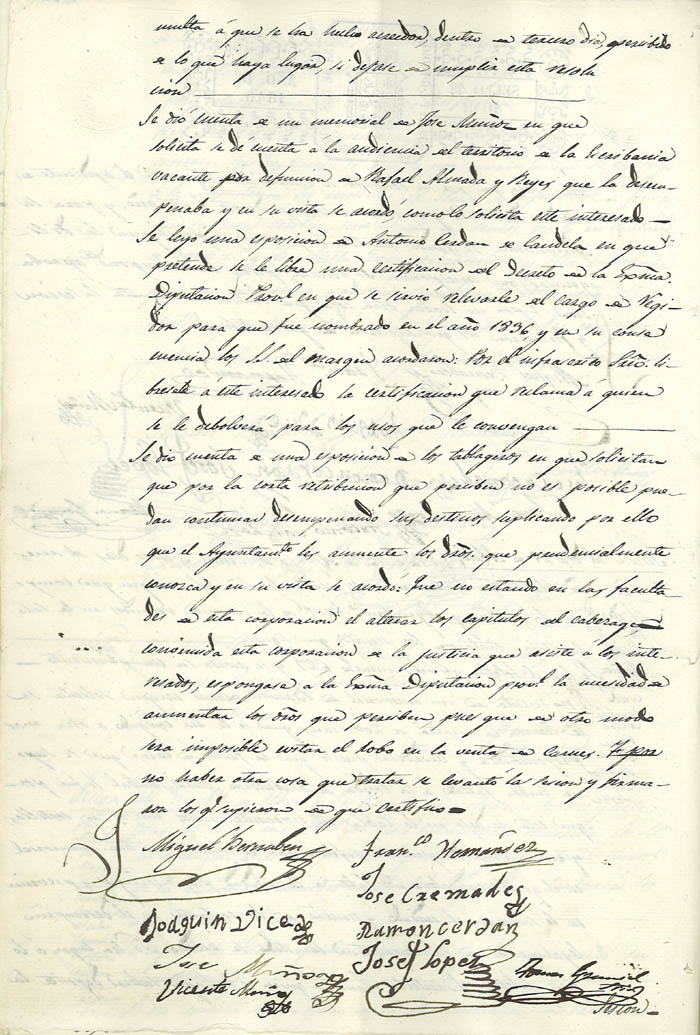 multa á que se ha hecho acreedor, dentro de tercero dia, apercibido
de lo que haya lugar, si dejase de cumplir esta resolu
cion
Se dió cuenta de un memorial de Jose Muñoz en que
solicita se dé cuenta á la audiencia del territorio de la Escribania
vacante por defuncion de Rafael Almada y Reyes que la desem-
peñaba y en su vista se acordó como lo solicita este interesado
Se leyo una esposicion de Antonio Cerdan de Candela en que
pretende se le libre una certificacion del Decreto de la Exma.
Diputacion Provl. en que se sirvió relevarle del cargo de Regi-
dor para que fue nombrado en el año 1836, y en su conse
cuencia los SS. del margen acordaron: Por el infrascrito Srio. li-
bresele á este interesado la certificacion que reclama á quien
se le debolverá para los usos que le convengan
Se dio cuenta de una esposicion de los tablageros en que solicitan
que por la corta retribucion que perciben no es posible pue-
dan continuar desempeñando sus destinos suplicando por ello
que el Ayuntamto. les aumente los dros. que prudencialmente
conosca y en su vista se acordó: Que no estando en las faculta-
des de esta corporacion el alterar los capitulos del cabezage,
convencida esta corporacion de la justicia que asiste a los inte-
resados, espongase á la Exma Diputacion provl. la necesidad de
aumentar los dros que perciben, pues que de otro modo
sera imposible evitar el robo en la venta de carnes. Y por
no haber otra cosa que tratar se levantó la secion y firma-
ron los q. supieron de que certifico=
Miguel Bernabeu
Fran.co Hernández
Jose Cremades
Joaquin Vicedo
Ramon cerdan
Jose Muñoz
Josef Lopez
Vicente Muñoz